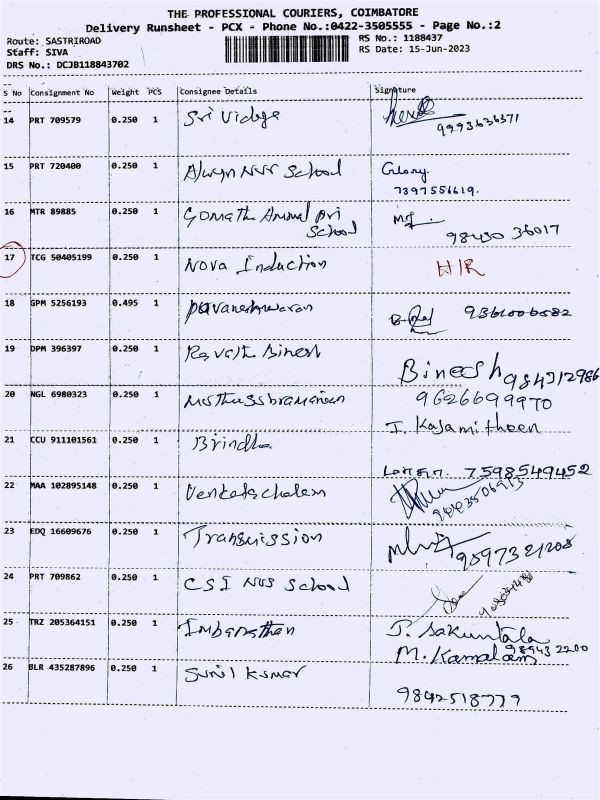 THE PROFESSIONAL COURIERS, COIMBATORE
Delivery Runsheet - PCX - Phone No.:0422-3505555 - Page No.:2
Route: SASTRIROAD RS No.: 1188437
Staff: SIVA RS Date: 15-Jun-2023
DRS No.: DCJB118843702
S No Consignment No Weight PCS Consignee Details Signature
14 PRT 709579 0.250 1 Sri Vidya
9993636371
15 PRT 720400 0.250 1 Alwyn NVS School Glory.
7397556619.
16 MTR 89885 0.250 1 Gomathi Ammal pri
School 98430 36017
17 TCG 50405199 0.250 1 Nova Induction H/R
18 GPM 5256193 0.495 1 pavaneshwaran 9361006582
19 DPM 396397 0.250 1 Revathi Binesh
Binesh 984312986
20 NGL 6980323 0.250 1 Muthusubramanian 9626699970
J. Kajamitheen
21 CCU 911101561 0.250 1 Brindha
7598549452
22 MAA 102895148 0.250 1 Venkatachalam
23 EDQ 16609676 0.250 1 Transmission
9597321208
24 PRT 709862 0.250 1 CSI NVS School
25 TRZ 205364151 0.250 1 Imbanathan J. Sakuntala
M. Kamalam 98943 2200
26 BLR 435287896 0.250 1 Sunil Kumar
9842518779